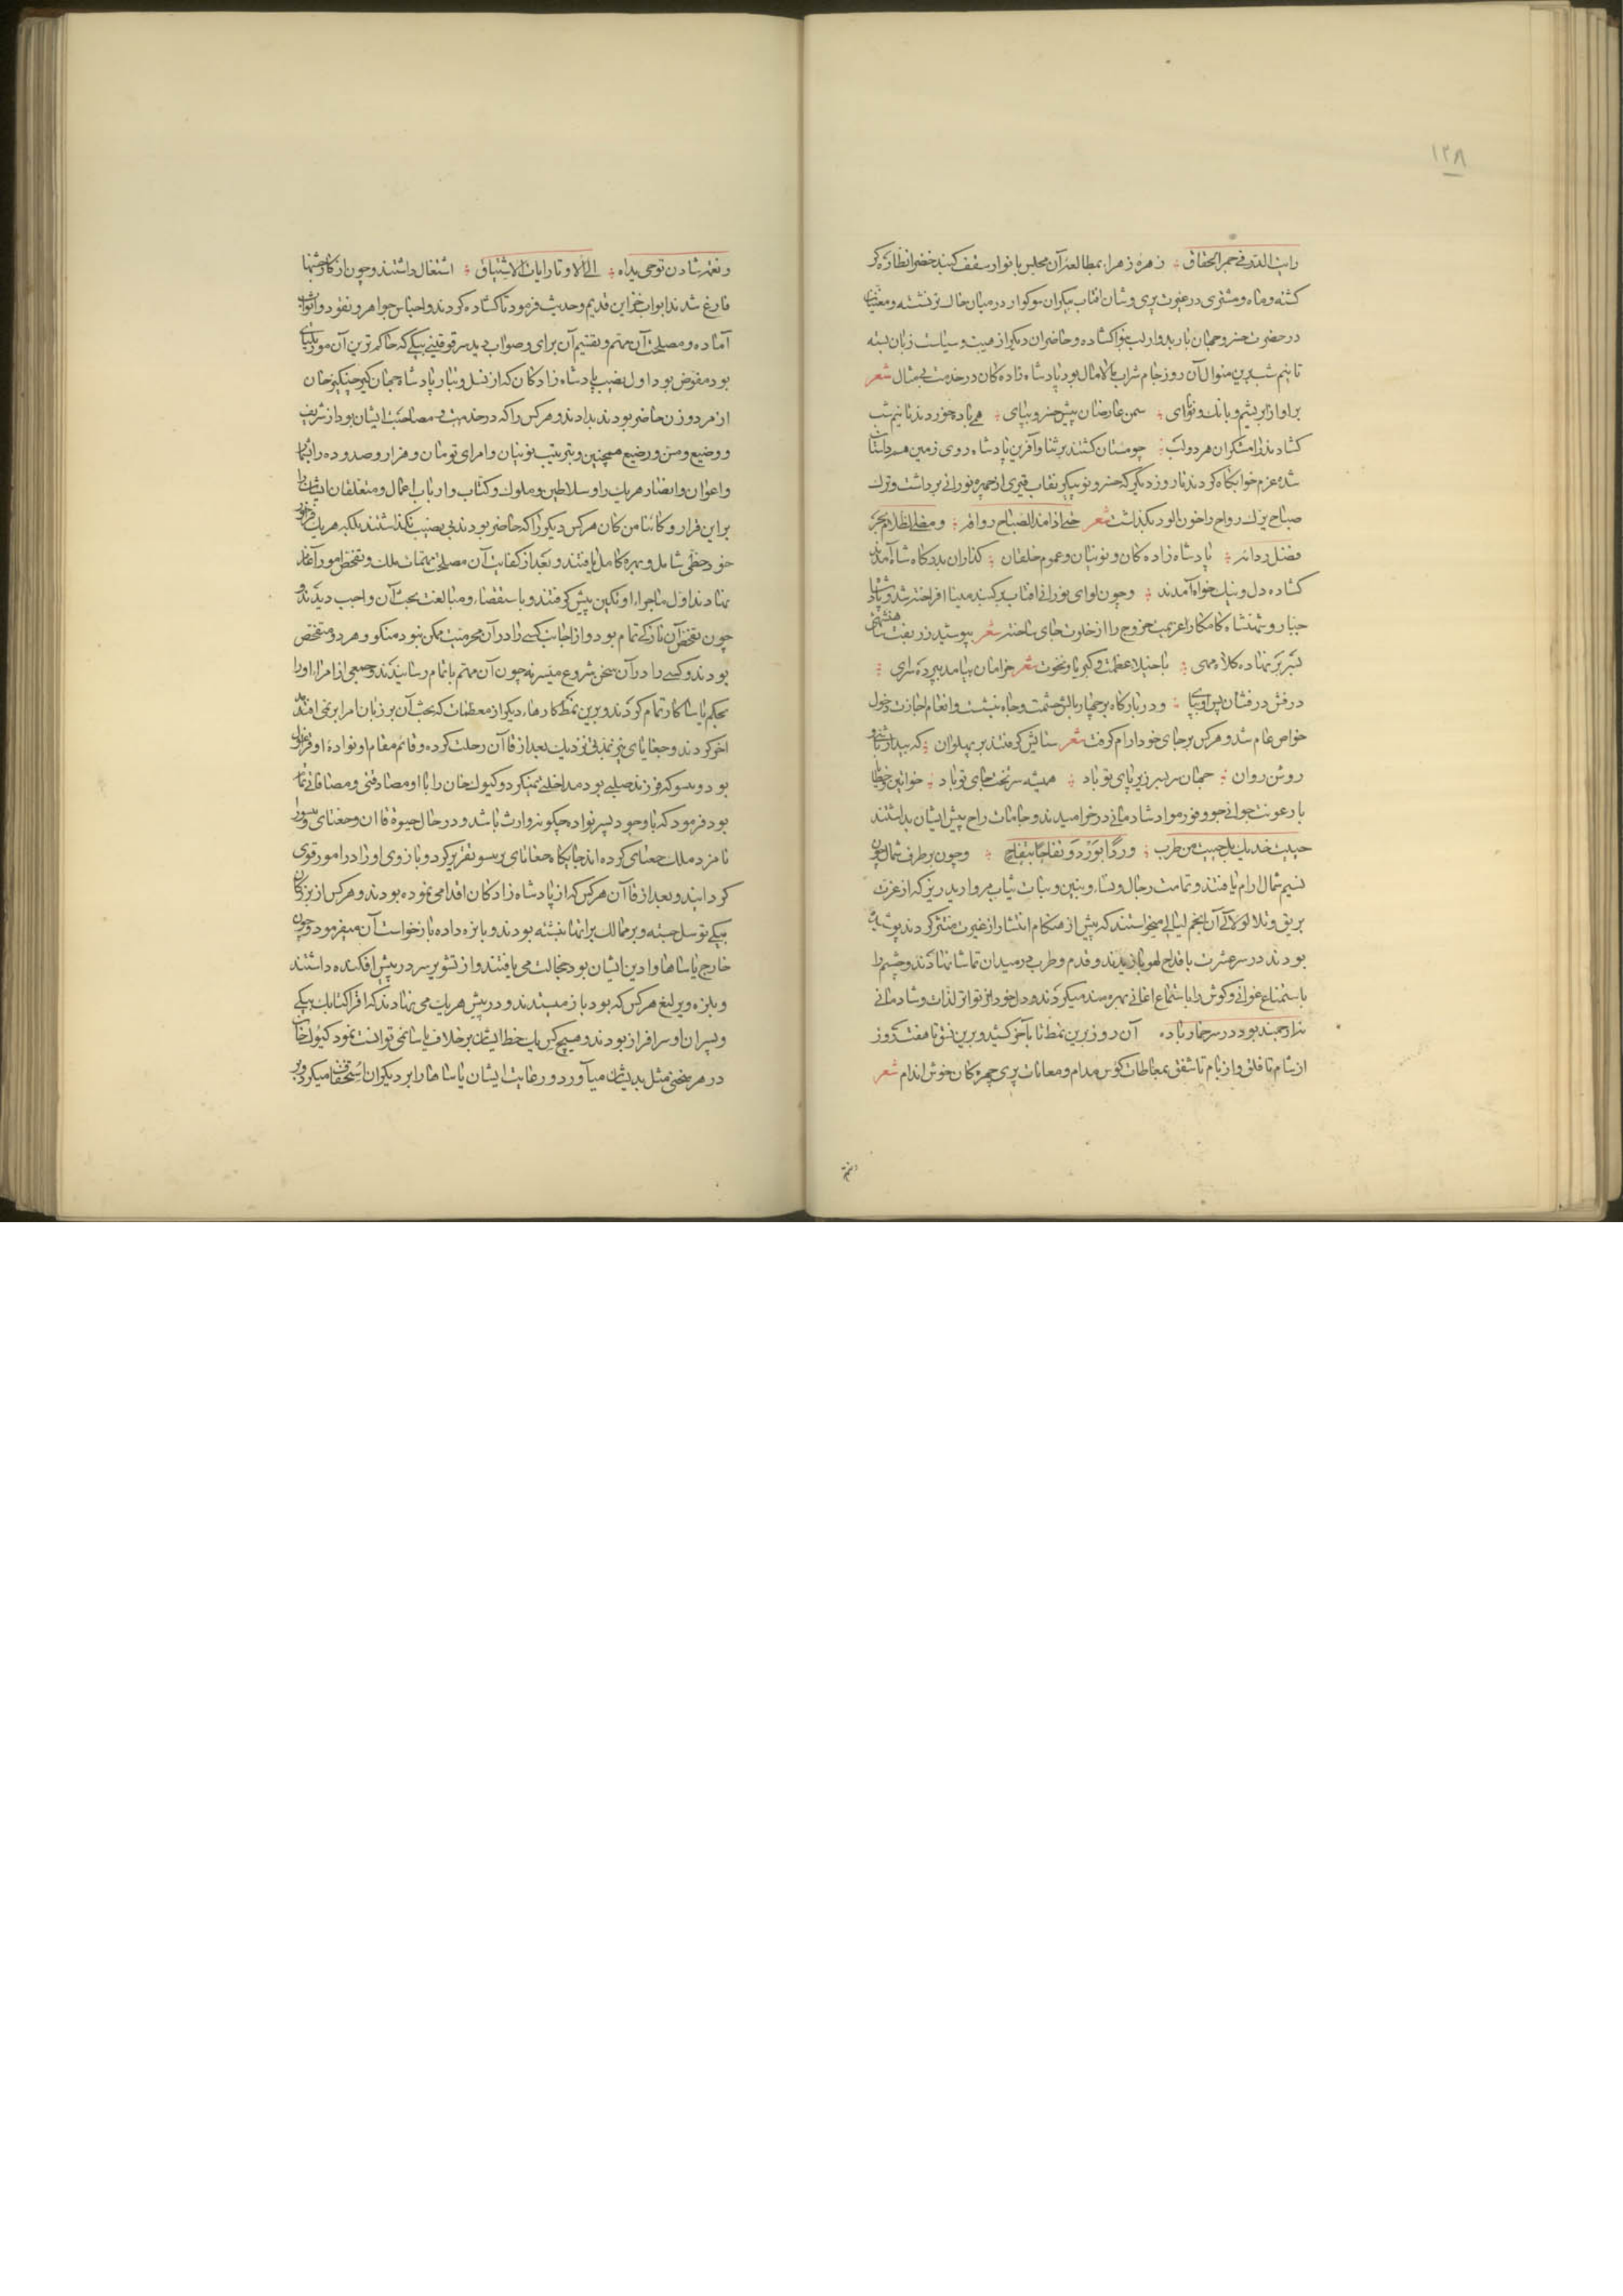 ۱۲۸
رایت البدر فی حجر المحاق زهره زهرا بمطالعه آن مجلس با نوار سقف کنبد خضرا نظاره کر
کشته و ماه و مشتری در غیرت پری وشان افتاب پیکر ان سوکوار در میان خاک تر نشسته و مغنیان
در حضرت خسرو جهان باربد وار لب بنوا کشاده و حاضران دیکر از هیبت و سیاست زبان بسته
تا نیم شب برین منوال آن روز جام شراب مالامال بود پادشاه زاده کان در خدمت بی مثال شعر
بر اواز ابریشم و بانک و نوای سمن عارضان پیش خسرو بپای همی باده خوردند تا نیم شب
کشادند رامشکران هر دو لب چو مستان کشتند بر ثنا و آفرین پادشاه روی زمین هم داستان
شده عزم خوابکاه کردند تا روز دیکر که خسرو نو پیکر نقاب قیری از چهره نورانی برداشت و ترک
صباح یزک رواح را خون الود بکذاشت شعر حتی اذا مد الصباح رواقه و مضی الظلام یجر
فضل ردائه پادشاه زاده کان و نوینان و عموم خلقان کذاران بدرکاه شاه آمدند
کشاده دل و نیک خواه آمدند و چون لوای نورانی افتاب بر کنبد مینا افراخته شد و پادشاه
جبار و شهنشاه کامکار عزیمت خروج را از خلوت جای ساخته شعر بپوشید زربفت شاهنشهی
بسر بر نهاده کلاه مهی با خیلا عظمت و کبریا و نخوت شعر خرامان بیامد ز پرده سرای
درفش درفشان پس او بپای و در بارکاه بر چهار بالش حشمت و جاه بنشست و انعام اجازت دخول
خواص عام شد و هرکس بر جای خود ارام کرفت شعر ستایش کرفتند بر پهلوان که بیدار باشی و
روشن روان جهان سربسر زیر پای تو باد همیشه سر تخت جای تو باد خواتین و خطایا
با رعونت جوانی چو وفور مواد شادمانی در خرامیدند و جامات راح پیش ایشان بداشتند
حییت خدیک بل حییت من طرب وردا بورد و تفاحا بتفاح و چون بر طرف شمال چون
نسیم شمال ارام یافتند و تمامت رجال و نساء و بنین و بنات ثیاب مروارید ریز که از عزت
بریق و تلالو لالی آن انجم لیالی میخواستند که پیش از هنکام انتثار از غیرت منتثر کردند پوشیده
بودند در سر عشرت با قداح لهو یازیدند و قدم و طرب در میدان تماشا نهادند و چشم را
باستمتاع غوانی و کوش را باستماع اغانی بهره مند میکردند و دل خود از تواتر لذات و شادمانی
نه ارجمند بود در سر خمار باده آن روز برین نمط تا بآخر کشید و برین نسق تا هفت روز
از شام تا فلق و از بام تا شفق بمعاطات کوس مدام و معانات پری چهرکان خوش اندام شعر
و نغمه شادن توحی یداه الی الاوتار ایات الاشتیاق اشتغال داشتند و چون از کار جشنها
فارغ شدند ابواب خزاین قدیم و حدیث فرمود تا کشاده کردند و اجناس جواهر و نقود و اثواب
آماده و مصلحت آن مهم و تقسیم آن برای و صواب دید سرقوقتنی بیکی که حاکم ترین آن
بود مفوض بود اول نصیب پادشاه زادکان که از نسل و تبار پادشاه جهان کیر چنکیز خان
از مرد و زن حاضر بودند بدادند و هرکس را که در خدمت و مصاحبت ایشان بود از شریف
و وضیع و مسن و رضیع همچنین و بترتیب نوینان و امرای تومان و هزار و صد و ده را
و اعوان و انصار هریک را و سلاطین و ملوک و کتاب و ارباب اعمال و متعلقان ایشان را
براین قرار و کائنا من کان هرکس دیکر را که حاضر بودند بی نصیب نکذاشتند بلکه هریک فراخور
خود حظی شامل و بهره کامل یافتند و بعد از کفایت آن مصلحت مهمات ملک و تفحص امور آغاز
نهادند اول ماجراء اوتکین پیش کرفتند و باستقصاء و مبالغت بحث آن واجب دیدند و
چون تفحص آن نازکی تمام بود و از اجانب کسی را در آن محرمیت ممکن نبود منکو و هردو متفحص
بودند و کسی را در آن سخن شروع میسر نه چون آن مهم باتمام رسانیدند و جمعی از امراء او را
بحکم یاسا کار تمام کردند و برین نمط کارهاء دیکر از معظمات که بحث آن بر زبان امرا برنمی افتد
اخر کردند و جغاتای نیز بمدتی نزدیک بعد از قاآن رحلت کرده و قائم مقام او نواده او قرا اغول
بود و ییسو که فرزند صلبی بود مداخلتی نمیکرد و کیوک خان را با او مصادقتی و مصافاتی تمام
بود فرمود که با وجود پسر نواده چکونه وارث باشد و در حال حیوة قاآن و جغتای و ییسو را
نامزد ملک جغتای کرده اند جایکاه جغاتای بر ییسو تقریر کرد و بازوی او را در امور قوی
کردانید و بعد از قاآن هرکس که از پادشاه زادکان اقدامی نموده بودند و هرکس از بزرکان
بیکی توسل جسته و بر ممالک براتها نبشته بودند و پایزه داده بازخواست آن میفرمود و چون
خارج یاساها و اذین ایشان بود خجالت می یافتند و از تشویر سر در پیش افکنده داشتند
و پایزه و یرلیغ هرکس که بود باز میستدند و در پیش هریک می نهادند که اقرا کتابک بیکی
و پسران او سرافراز بودند و هیچ کس یک خط ایشان بر خلاف یاسا نمی توانست نمود کیوک خان
در هر سخنی مثل بدیشان میآورد و رعایت ایشان یاساها را بر دیکران استخفاف میکرد و بر